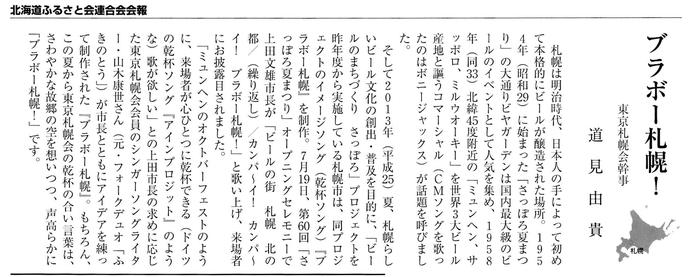 北海道ふるさと会連合会会報
ブラボー札幌！
東京札幌会幹事
道見由貴
札幌
札幌は明治時代、日本人の手によって初め
て本格的にビールが醸造された場所。195
4年（昭和29）に始まった「さっぽろ夏まつ
り」の大通りビヤガーデンは国内最大級のビ
ールのイベントとして人気を集め、1958
年（同33）北緯45度附近の「ミュンヘン、サ
ッポロ、ミルウオーキー」を世界3大ビール
産地と謳うコマーシャル（CMソングを歌っ
たのはボニージャックス）が話題を呼びまし
た。
そして2013年（平成25）夏、札幌らし
いビール文化の創出・普及を目的に、「ビー
ルのまちづくり　さっぽろ」プロジェクトを
昨年度から実施している札幌市は、同プロジ
ェクトのイメージソング（乾杯ソング）「ブ
ラボー札幌」を制作。7月19日、第60回「さ
っぽろ夏まつり」オープニングセレモニーで
上田文雄市長が「ビールの街　札幌　北の
都／（繰り返し）／カンパ〜イ！　カンパ〜
イ！　ブラボー札幌！」と歌い上げ、来場者
にお披露目されました。
「ミュンヘンのオクトバーフェストのよう
に、来場者が心ひとつに乾杯できる（ドイツ
の乾杯ソング「アインプロジット」のよう
な）歌が欲しい」との上田市長の求めに応じ
た東京札幌会会員のシンガーソングライタ
ー・山木康世さん（元・フォークデュオ「ふ
きのとう」）が市長とともにアイデアを練っ
て制作された『ブラボー札幌』。もちろん、
この夏から東京札幌会の乾杯の合い言葉は、
さわやかな故郷の空を想いつつ、声高らかに
「ブラボー札幌！」です。